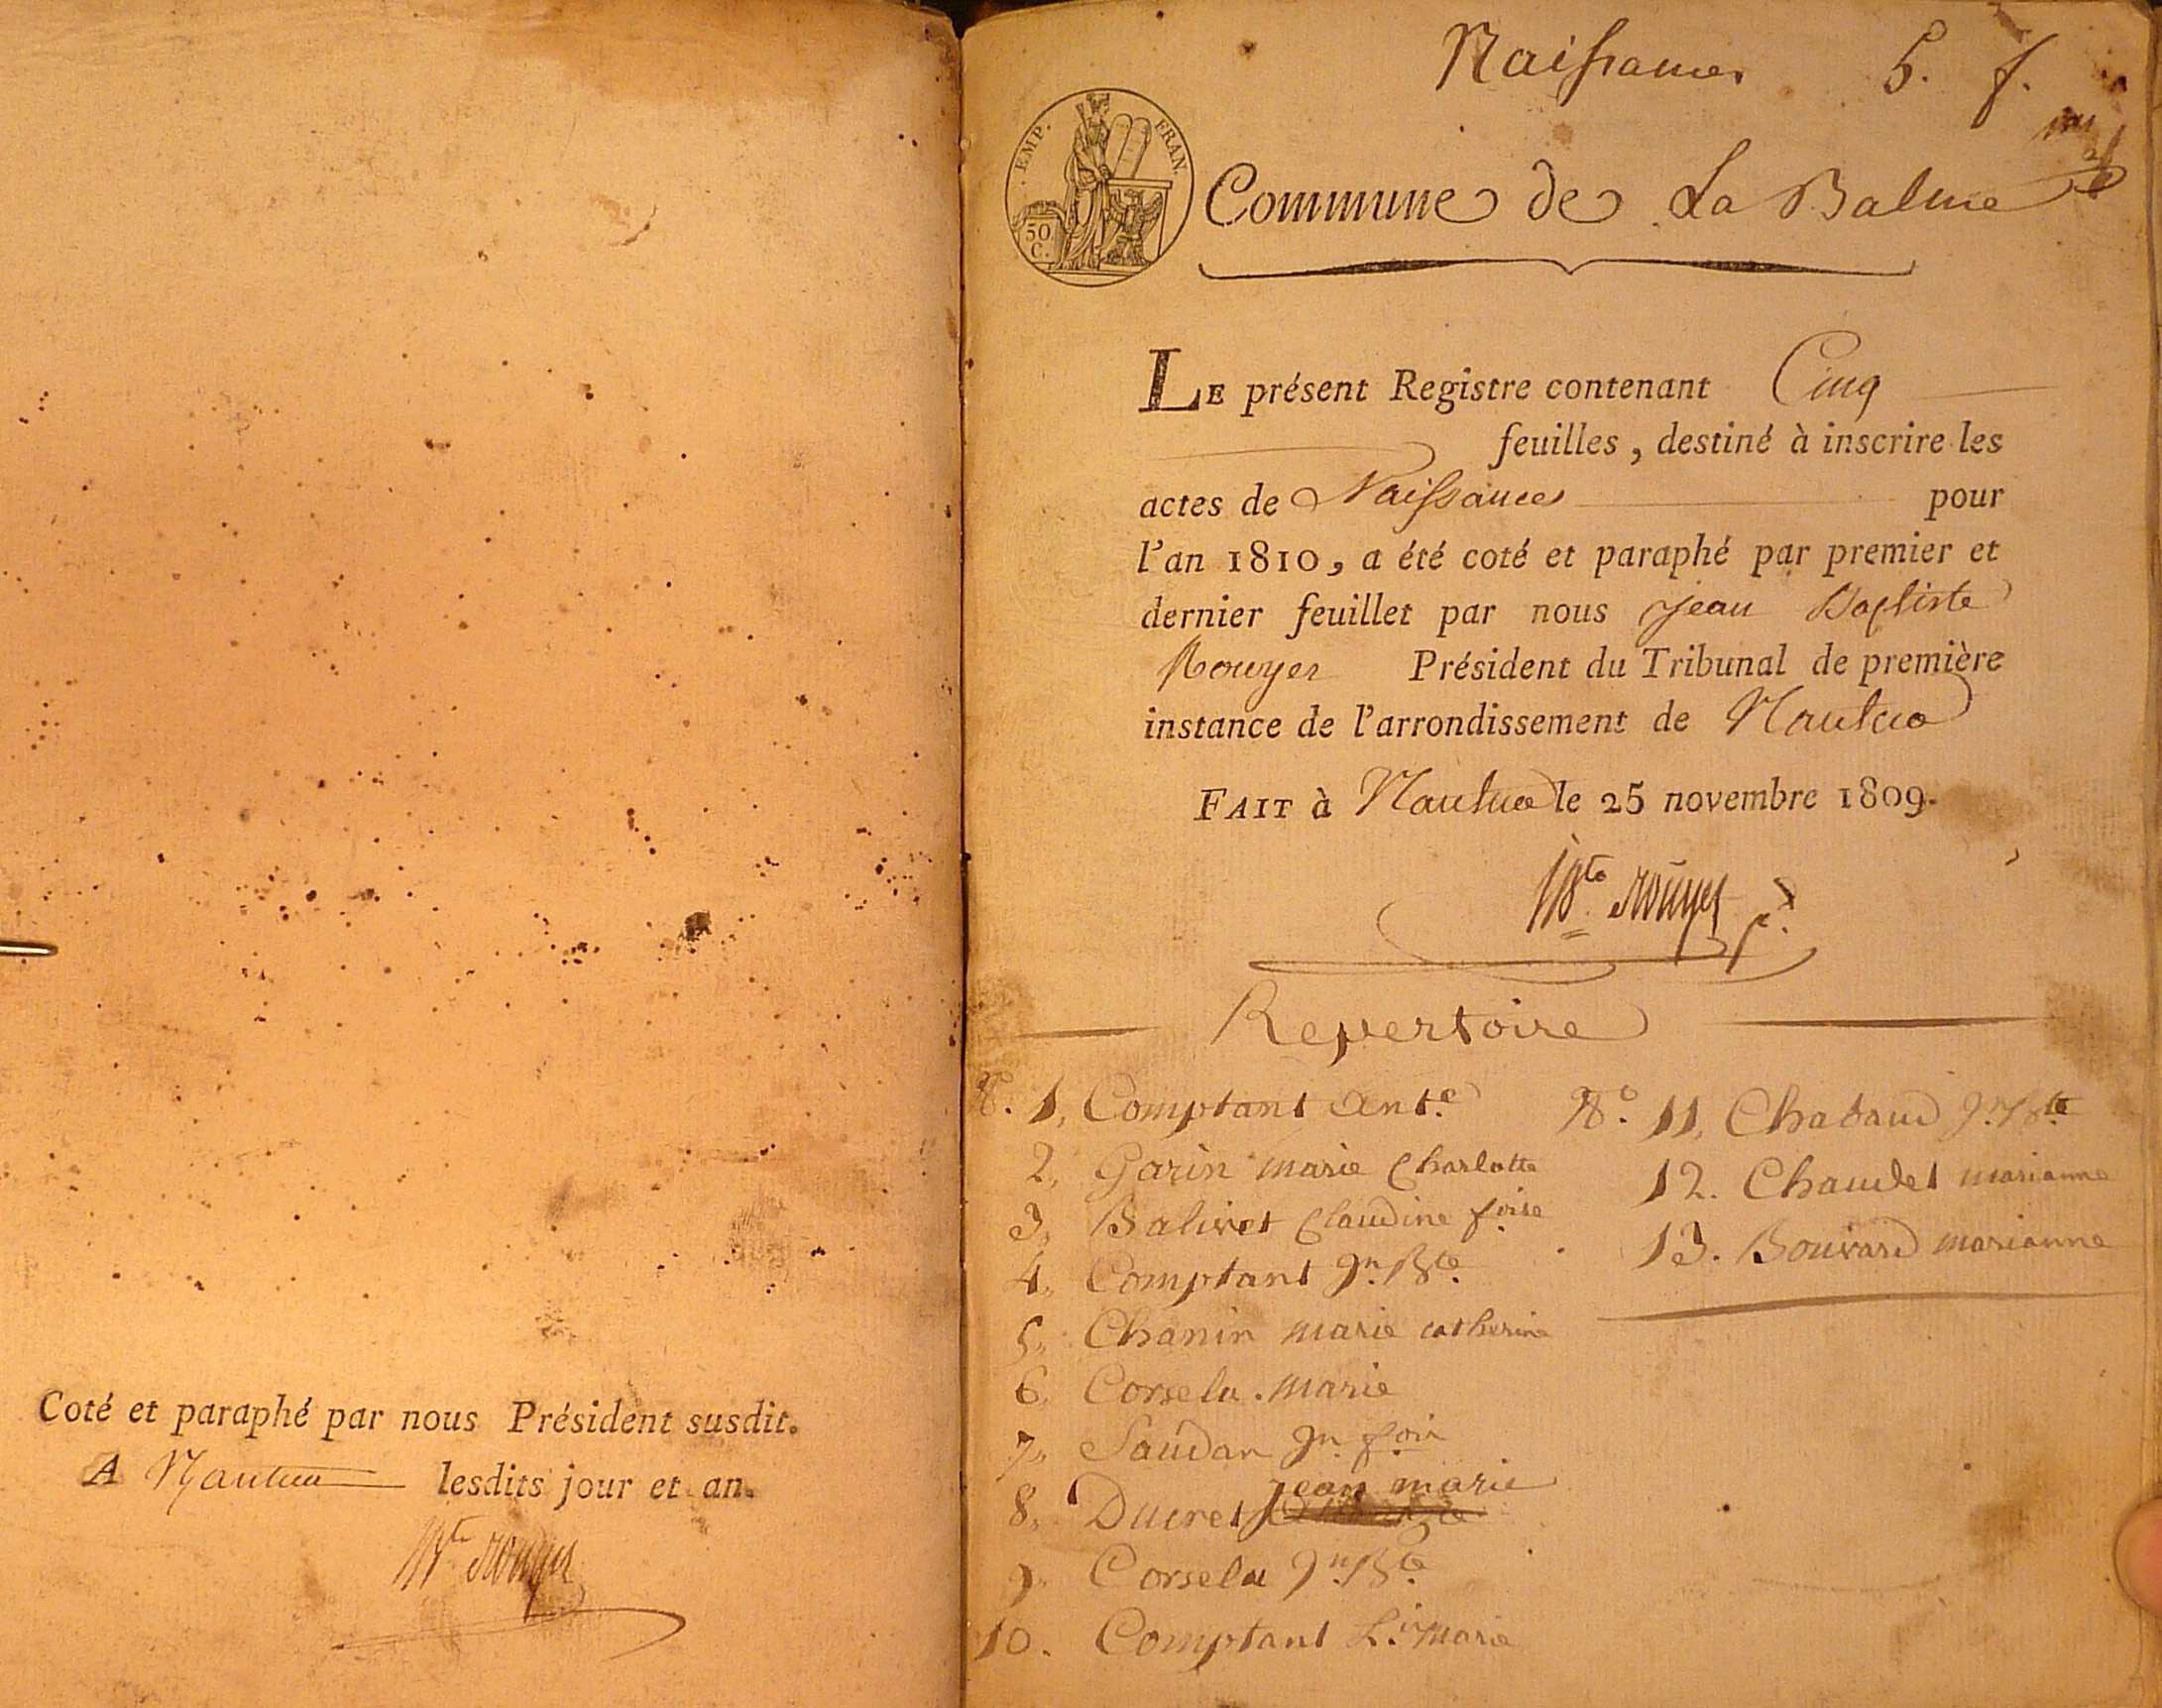 Coté et paraphé par nous Président susdit.
A Nantua lesdits jour et an.
Jn Bte Rouyer
Naissances 5. f.
EMP. FRAN.
50 C.
Commune de La Balme
LE présent Registre contenant Cinq
feuilles, destiné à inscrire les
actes de Naissances pour
l'an 1810, a été coté et paraphé par premier et
dernier feuillet par nous Jean Baptiste
Rouyer Président du Tribunal de première
instance de l'arrondissement de Nantua
FAIT à Nantua le 25 novembre 1809.
Bte Rouyer p.
Repertoire
No. 1, Comptant Ante
2, Garin marie Charlotte
3, Balivet Claudine foise
4, Comptant Jn Bte
5, Chanin marie catherine
6, Corselu marie
7, Saudan Jn fois
8, Ducret jean marie
9. Corselu Jn Bte
10. Comptant Ls Marie
No. 11, Chabaud Jn Bte
12. Chaudet marianne
13. Bouvard marianne